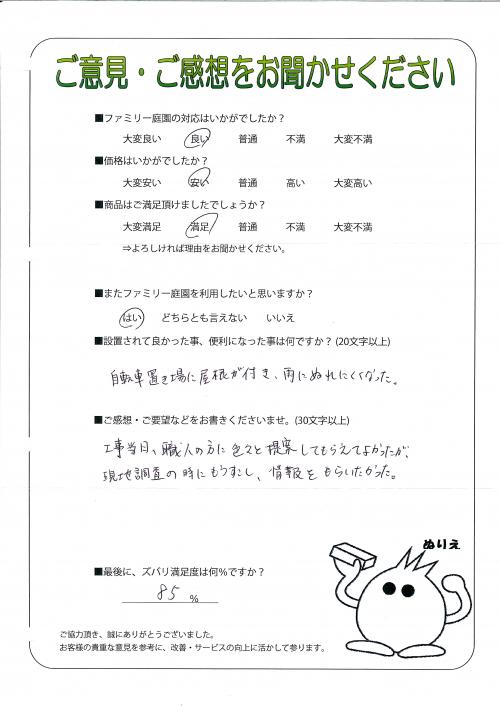 ご意見・ご感想をお聞かせください
■ファミリー庭園の対応はいかがでしたか？
大変良い 良い 普通 不満 大変不満
■価格はいかがでしたか？
大変安い 安い 普通 高い 大変高い
■商品はご満足頂けましたでしょうか？
大変満足 満足 普通 不満 大変不満
⇒よろしければ理由をお聞かせください。
■またファミリー庭園を利用したいと思いますか？
はい どちらとも言えない いいえ
■設置されて良かった事、便利になった事は何ですか？(20文字以上)
自転車置き場に屋根が付き、雨にぬれにくくなった。
■ご感想・ご要望などをお書きくださいませ。(30文字以上)
工事当日、職人の方に色々と提案してもらえてよかったが、
現地調査の時にもう少し、情報をもらいたかった。
ぬりえ
■最後に、ズバリ満足度は何%ですか？
85 %
ご協力頂き、誠にありがとうございました。
お客様の貴重な意見を参考に、改善・サービスの向上に活かして参ります。